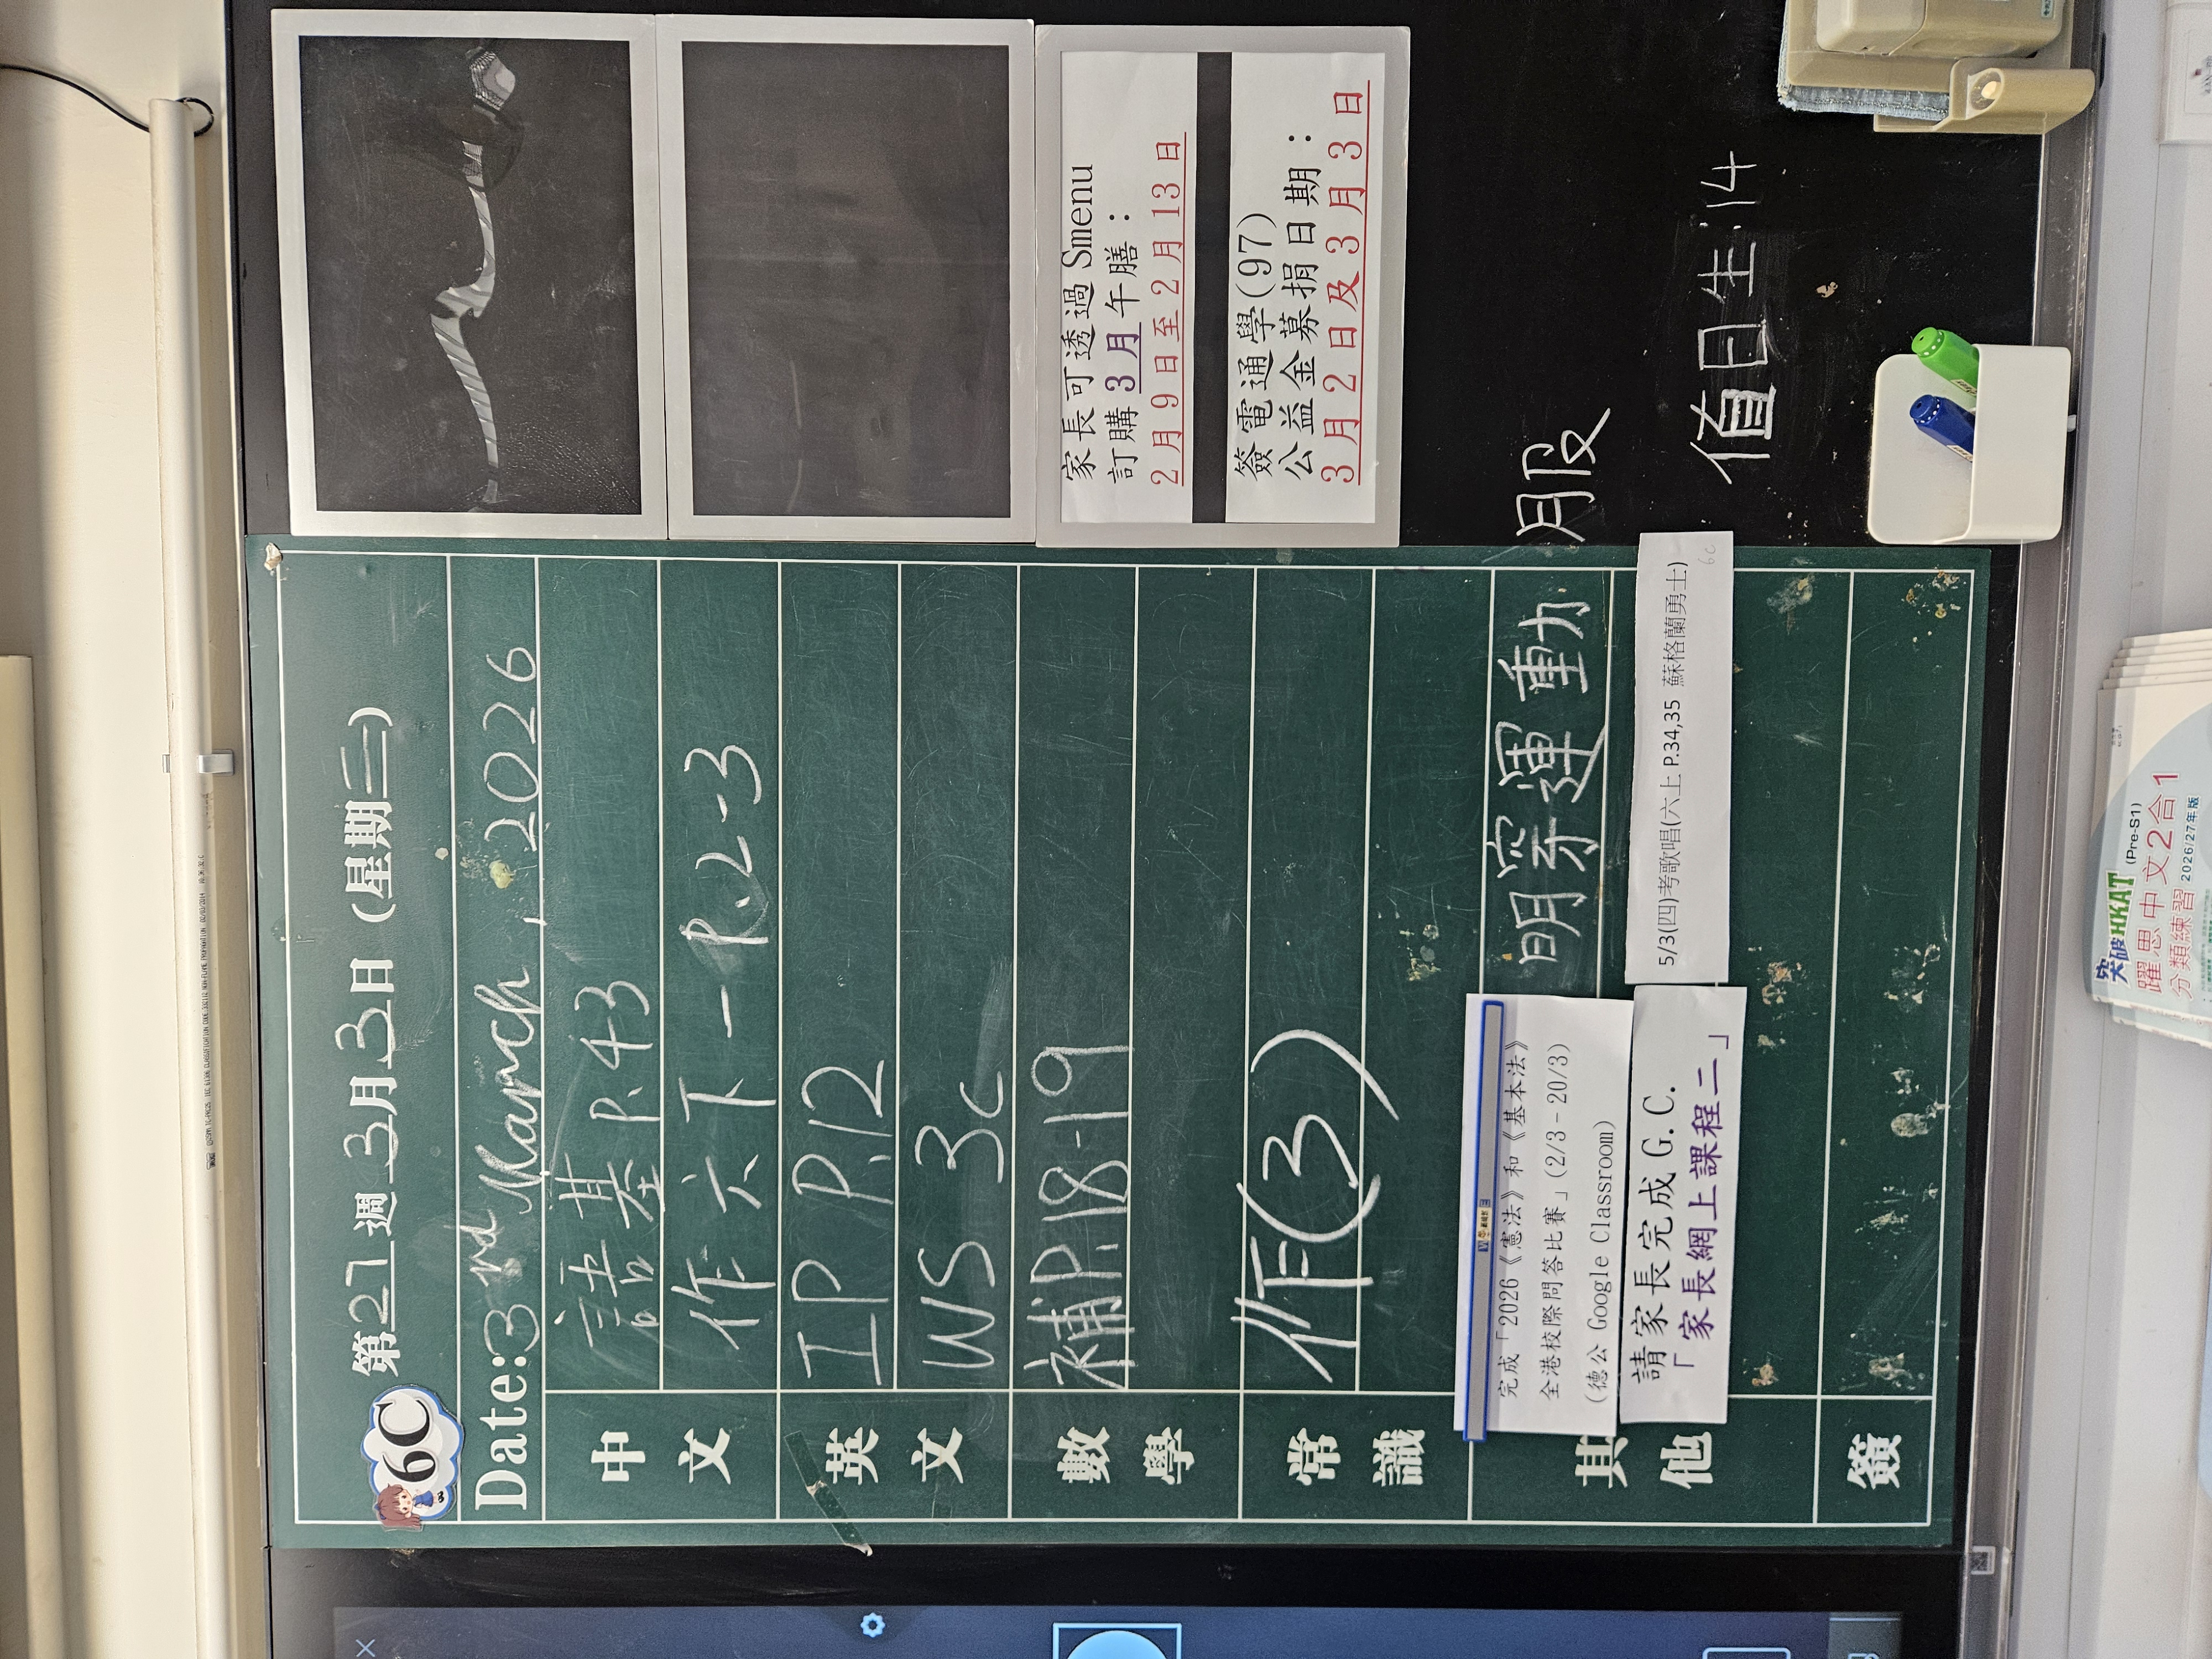 6C
第21週3月3日(星期二)
Date:3rd March, 2026
中文
語基 P.43
作六下一P.2-3
英文
IP P.12
WS 3c
數學
補P.18-19
常識
作(3)
其他
完成「2026《憲法》和《基本法》
全港校際問答比賽」(2/3-20/3)
(德公 Google Classroom)
明穿運動
服
請家長完成 G.C.
「家長網上課程二」
5/3(四)考歌唱(六上 P.34,35 蘇格蘭勇士)
6c
簽
家長可透過 Smenu
訂購 3月午膳：
2月9日至2月13日
簽電通學(97)
公益金募捐日期：
3月2日及3月3日
值日生:14
突破HKAT (Pre-S1)
躍思中文2合1
分類練習 2026/27年版